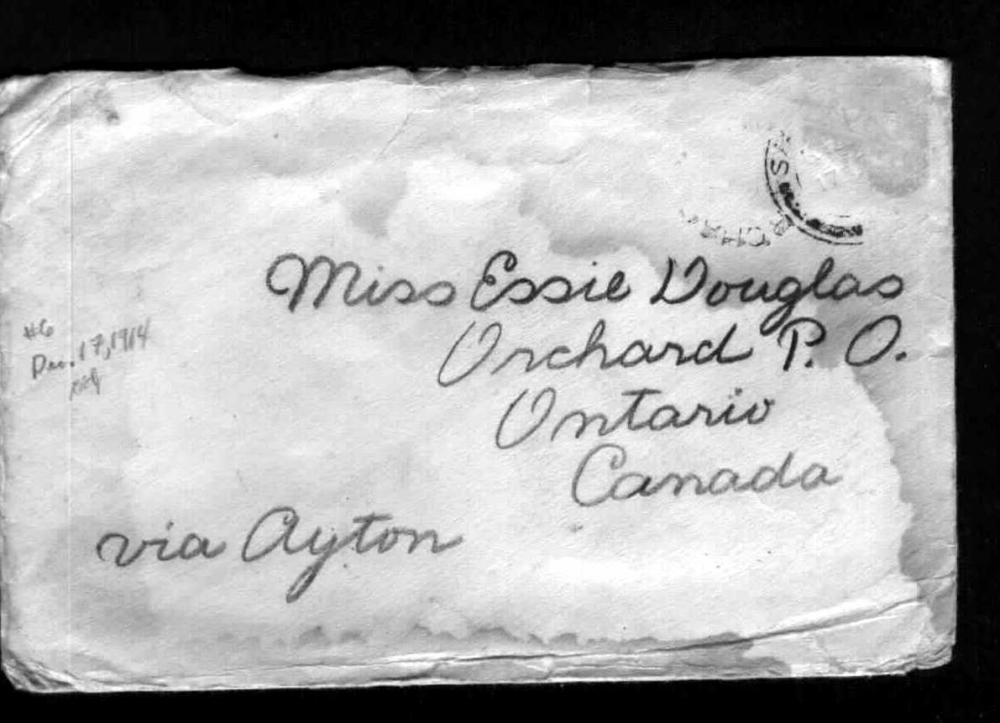 Miss Essie Douglas
Orchard P. O.
Ontario
Canada
via Ayton
#6
Dec. 17, 1914